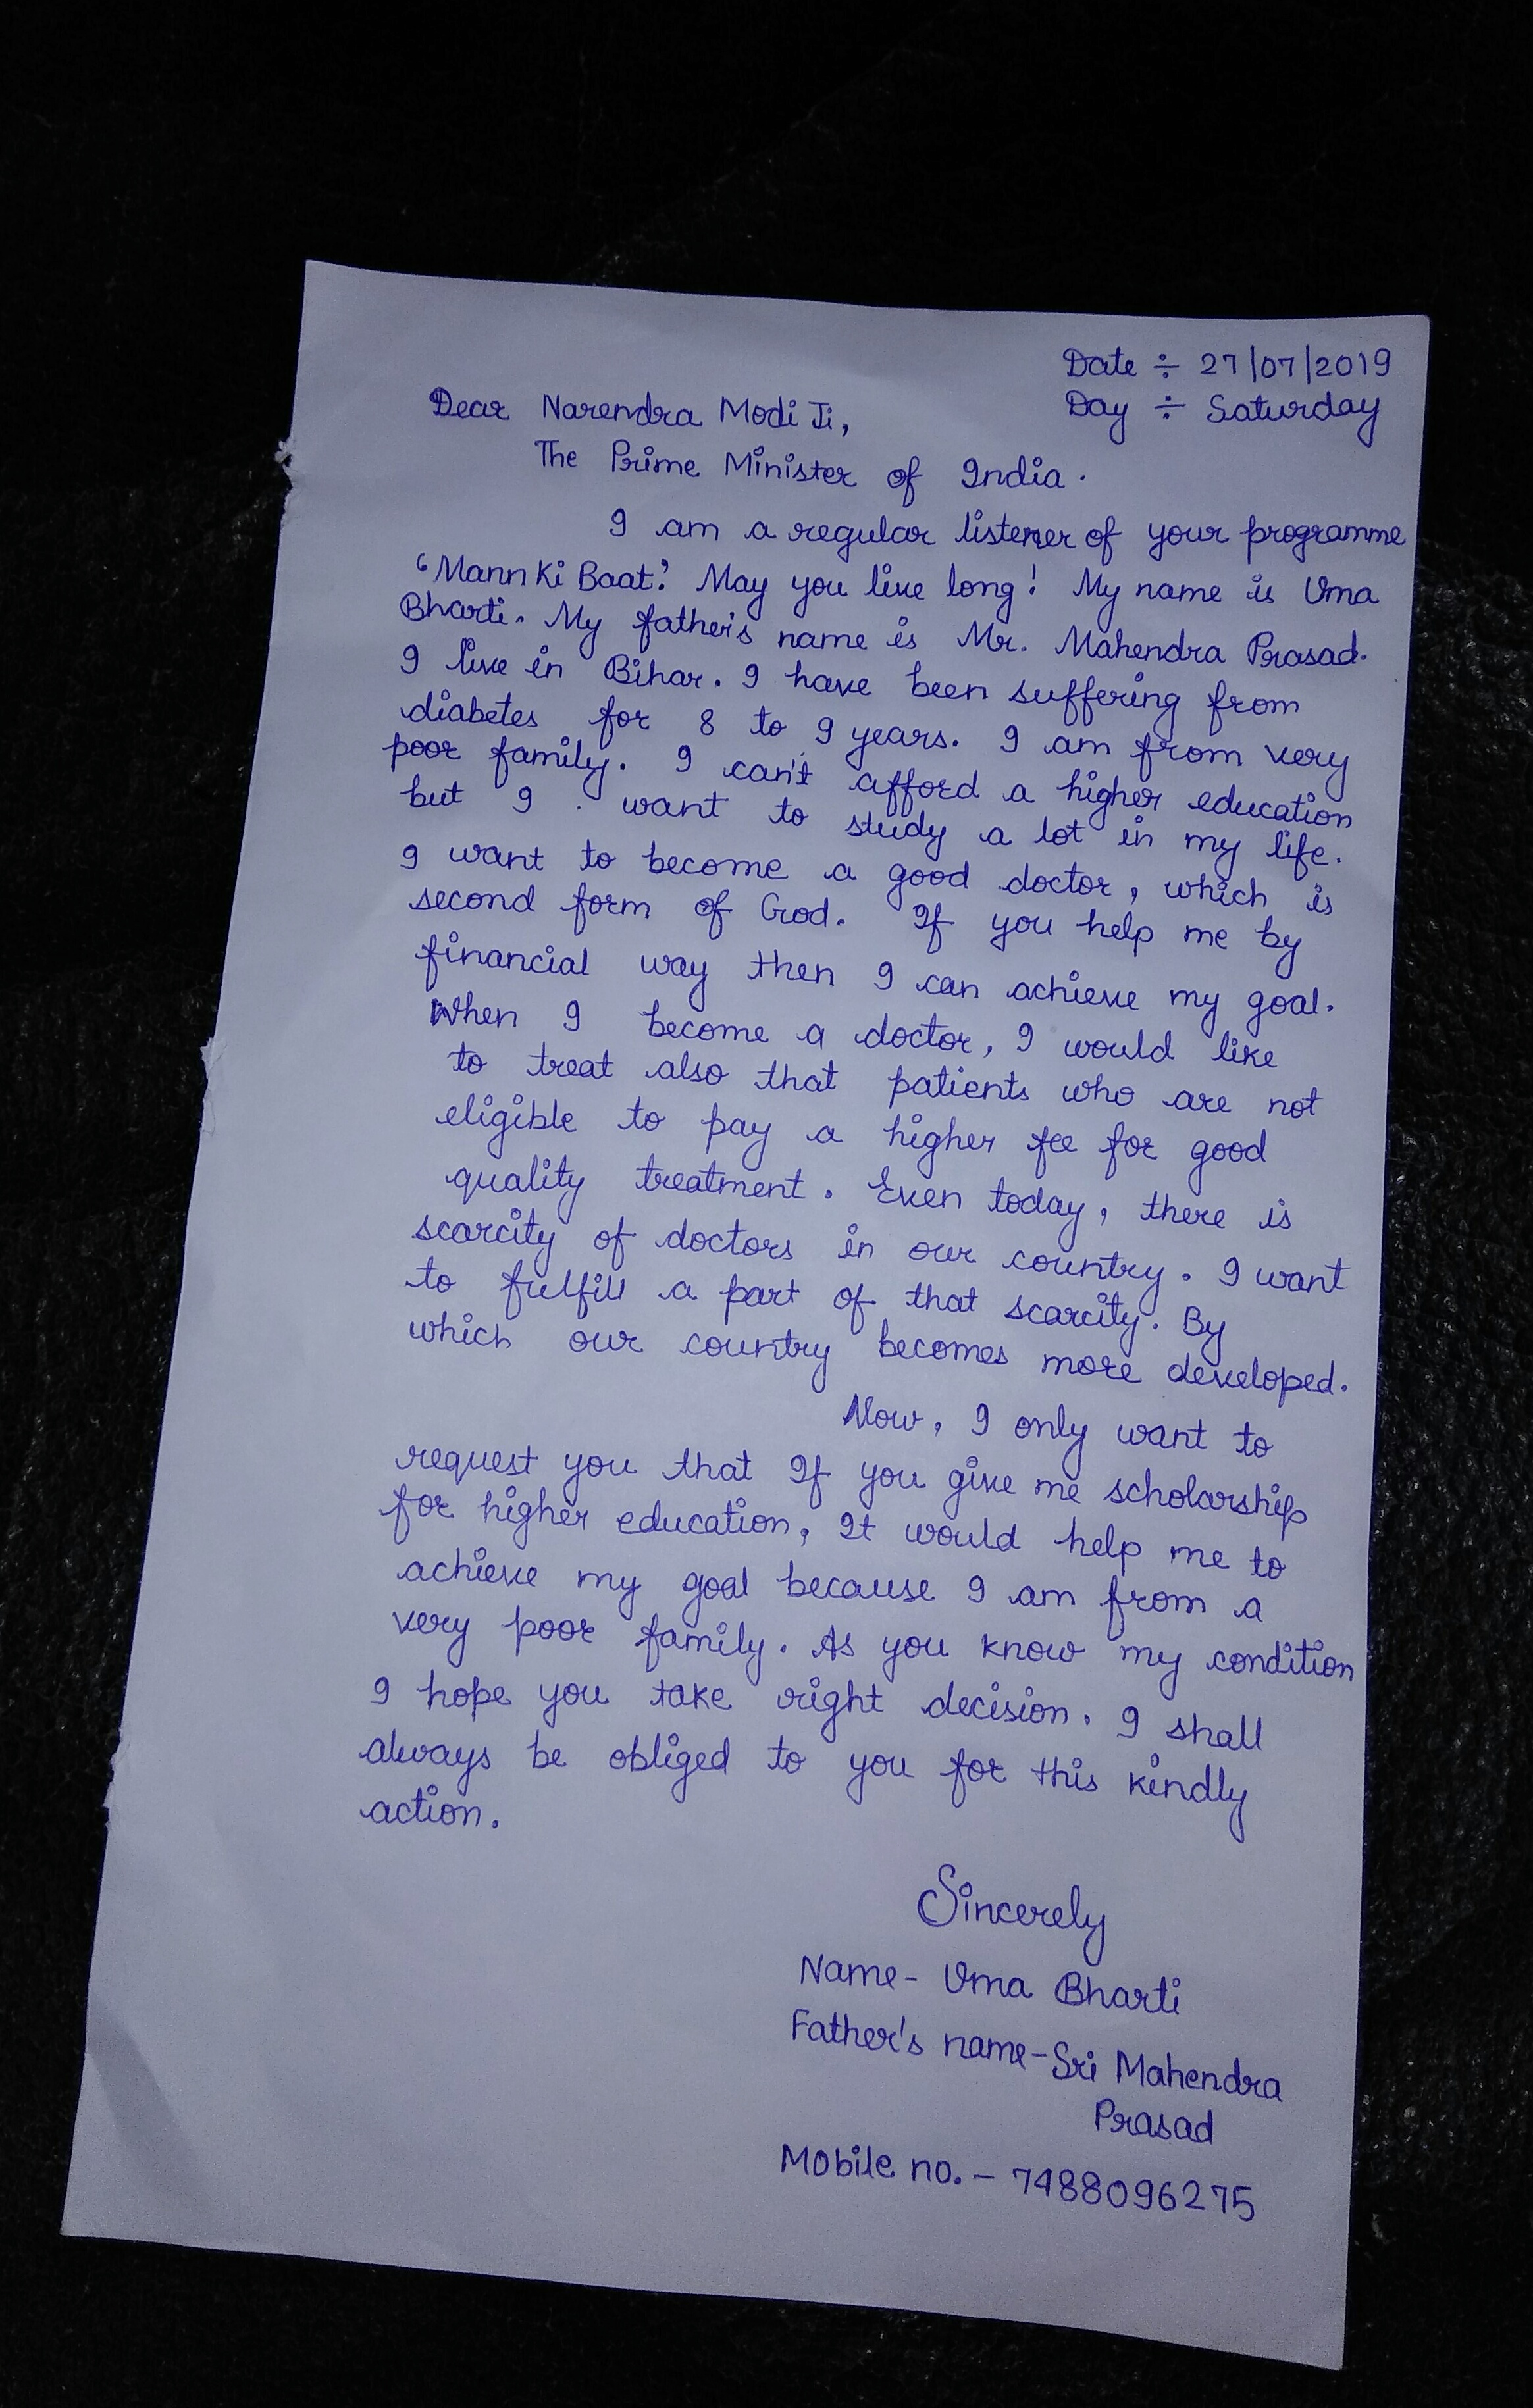 Date ÷ 27/07/2019
Dear Narendra Modi Ji,
Day ÷ Saturday
The Prime Minister of India.
I am a regular listener of your programme
'Mann Ki Baat'. May you live long! My name is Uma
Bharti. My father's name is Mr. Mahendra Prasad.
I live in Bihar. I have been suffering from
diabetes for 8 to 9 years. I am from very
poor family. I can't afford a higher education
but I want to study a lot in my life.
I want to become a good doctor, which is
second form of God. If you help me by
financial way then I can achieve my goal.
When I become a doctor, I would like
to treat also that patients who are not
eligible to pay a higher fee for good
quality treatment. Even today, there is
scarcity of doctors in our country. I want
to fulfill a part of that scarcity. By
which our country becomes more developed.
Now, I only want to
request you that If you give me scholarship
for higher education, It would help me to
achieve my goal because I am from a
very poor family. As you know my condition
I hope you take right decision. I shall
always be obliged to you for this kindly
action.
Sincerely
Name- Uma Bharti
Father's name-Sri Mahendra
Prasad
Mobile no. - 7488096275